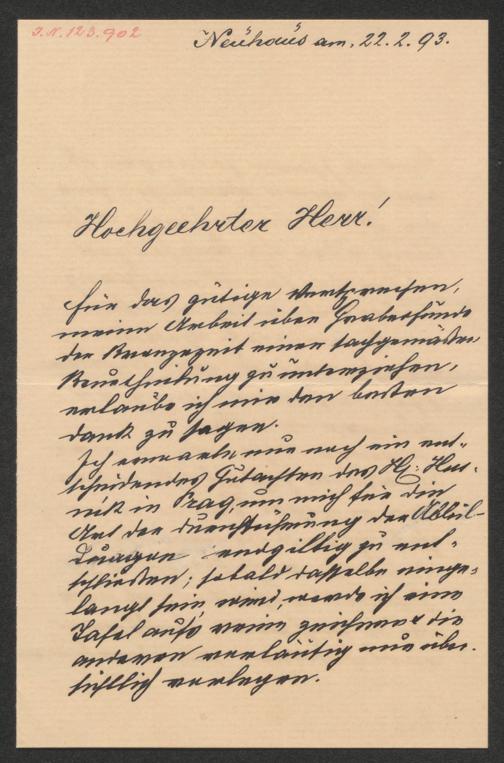 J.N. 123.902
Neuhaus am, 22. 2. 93.
Hochgeehrter Herr!
Für das gütige Versprechen,
meine Arbeit über Graberfunde
der Bronzezeit einer fachgemäßen
Beurtheilung zu unterziehen,
erlaube ich mir den besten
Dank zu sagen.
Ich erwarte nur noch ein ent-
scheidendes Gutachten des H:
in Prag, um mich für die
Art der Durchführung der Abbil-
dungen endgiltig zu ent-
schließen; sobald dasselbe einge-
langt sein wird, werde ich eine
Tafel aufs reine zeichnen die
anderen vorläufig nur über-
sichtlich vorlegen.